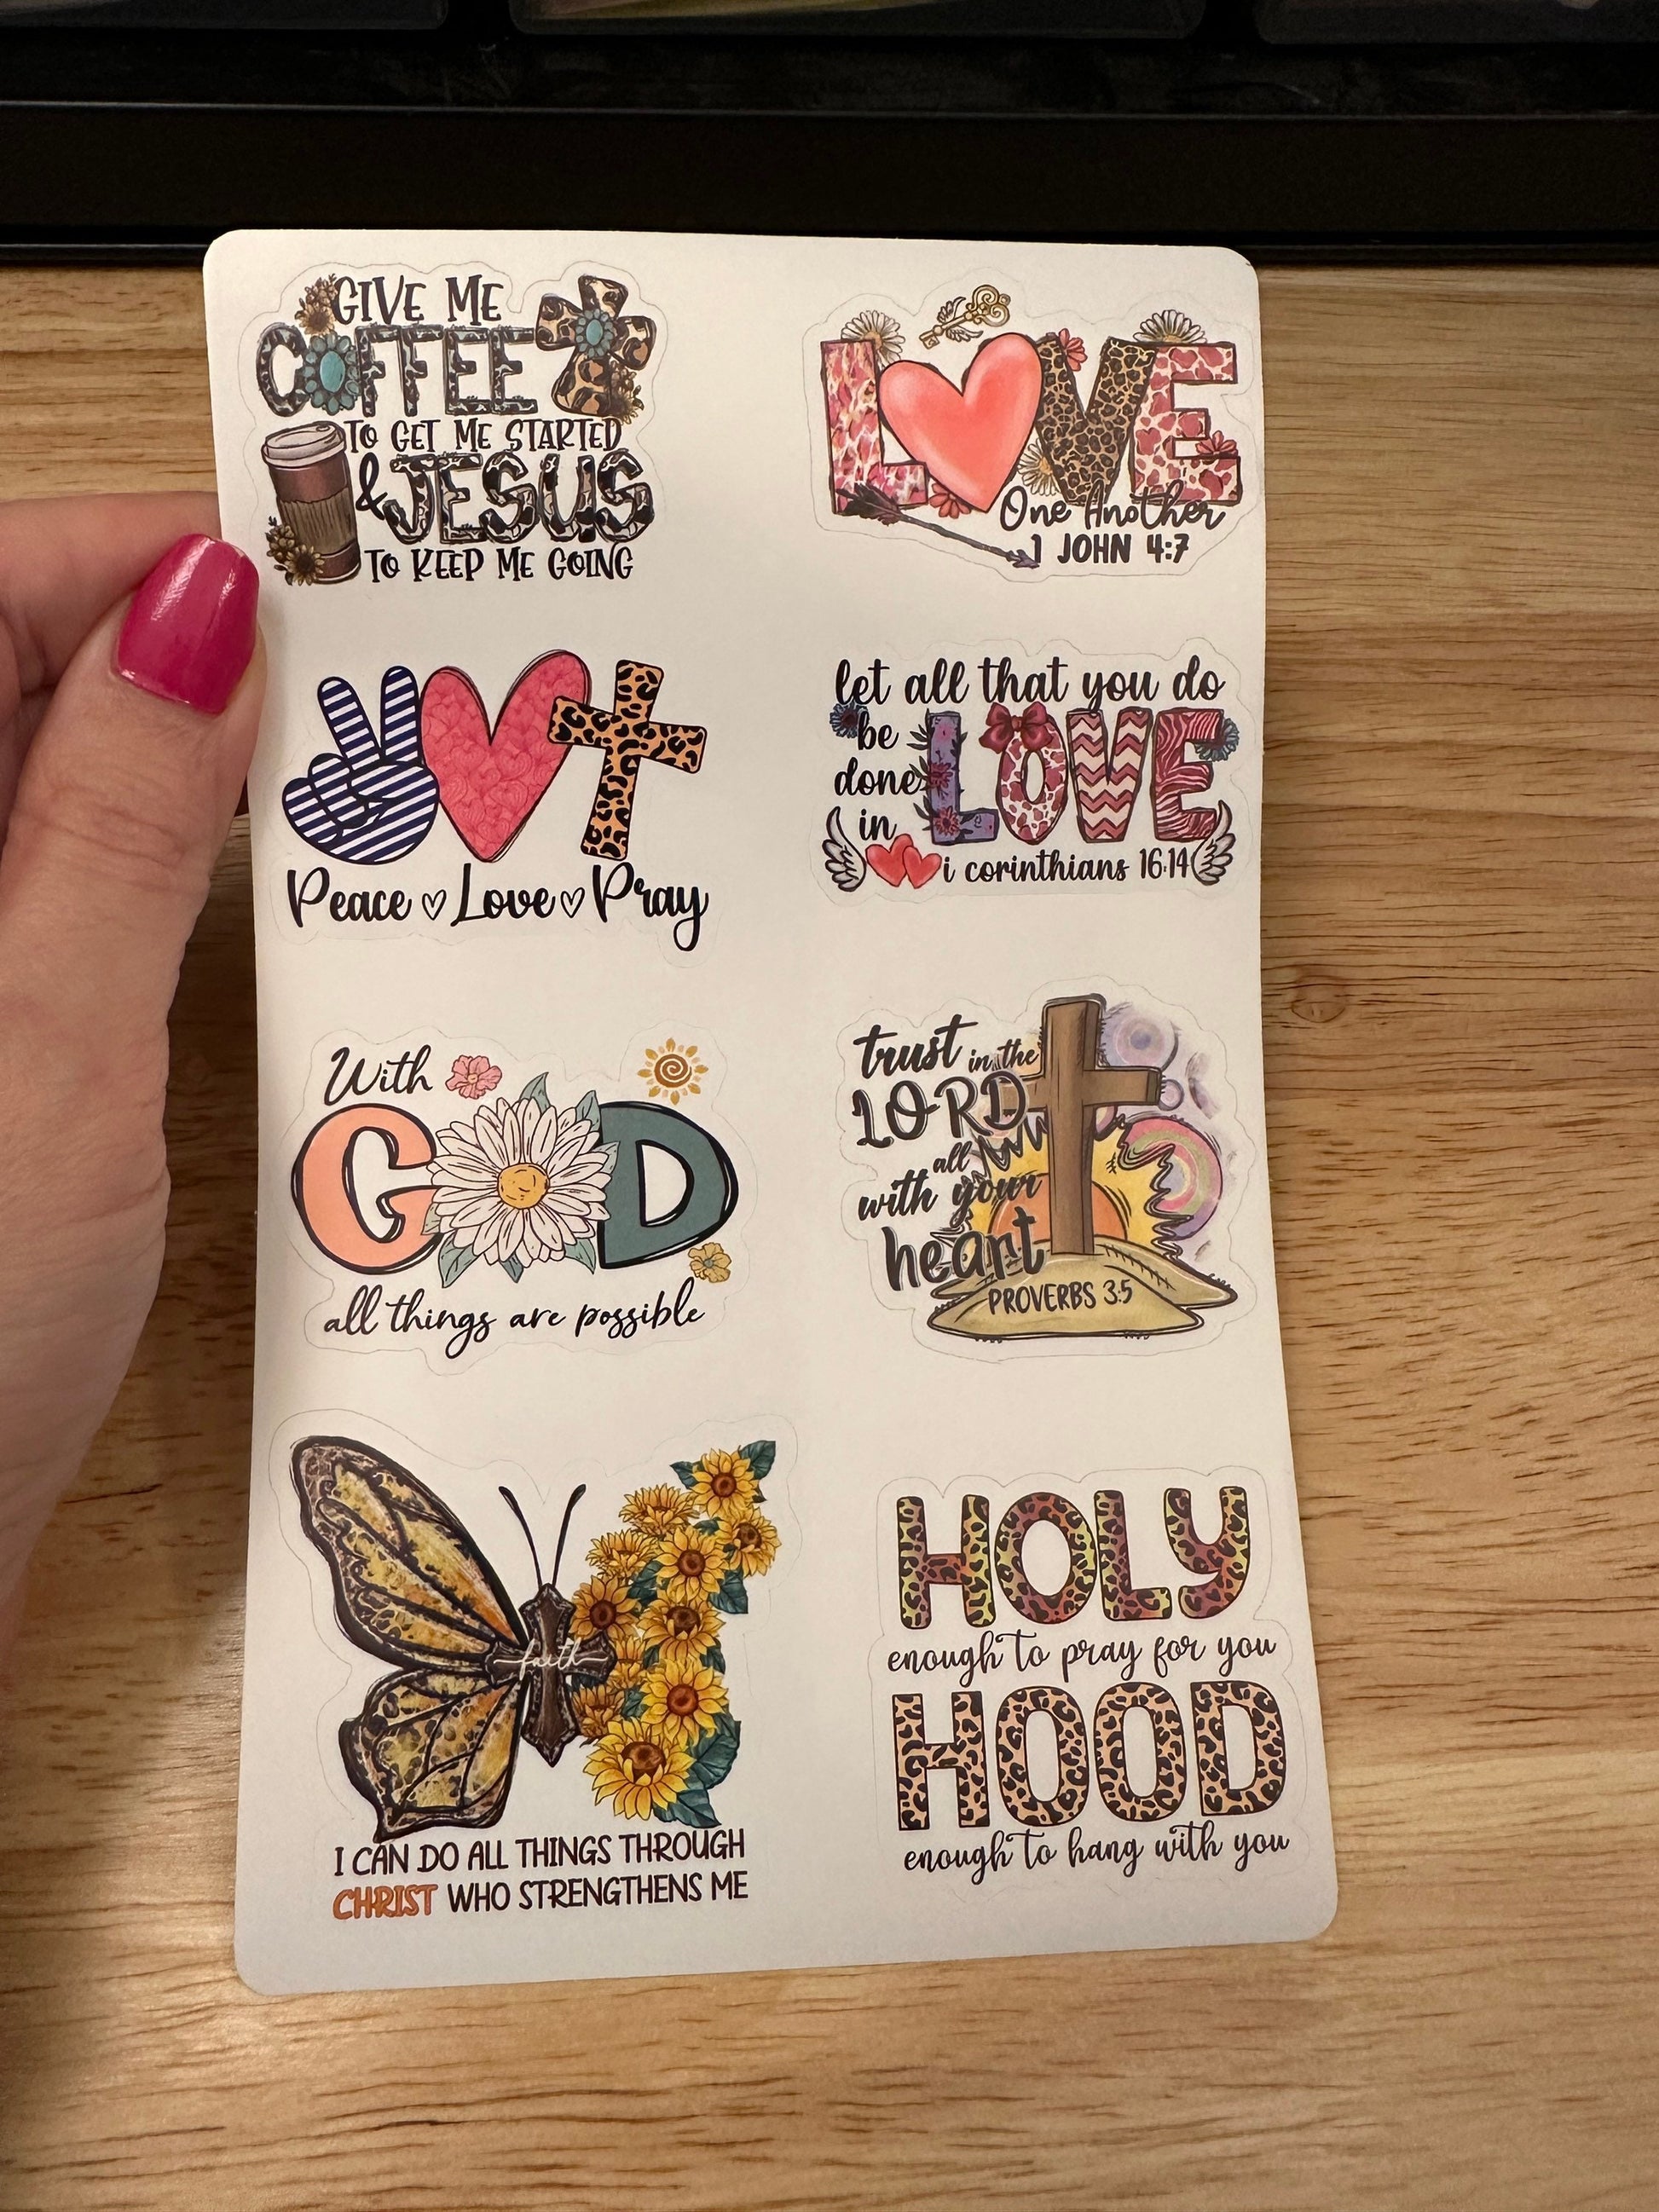 GIVE ME
COFFEE
TO GET ME STARTED
& JESUS
TO KEEP ME GOING
LOVE
One Another
1 JOHN 4:7
Peace ♡ Love ♡ Pray
let all that you do
be
done
in
LOVE
i corinthians 16:14
With
GOD
all things are possible
trust in the
LORD
all
with your
heart
PROVERBS 3:5
faith
I CAN DO ALL THINGS THROUGH
CHRIST WHO STRENGTHENS ME
HOLY
enough to pray for you
HOOD
enough to hang with you